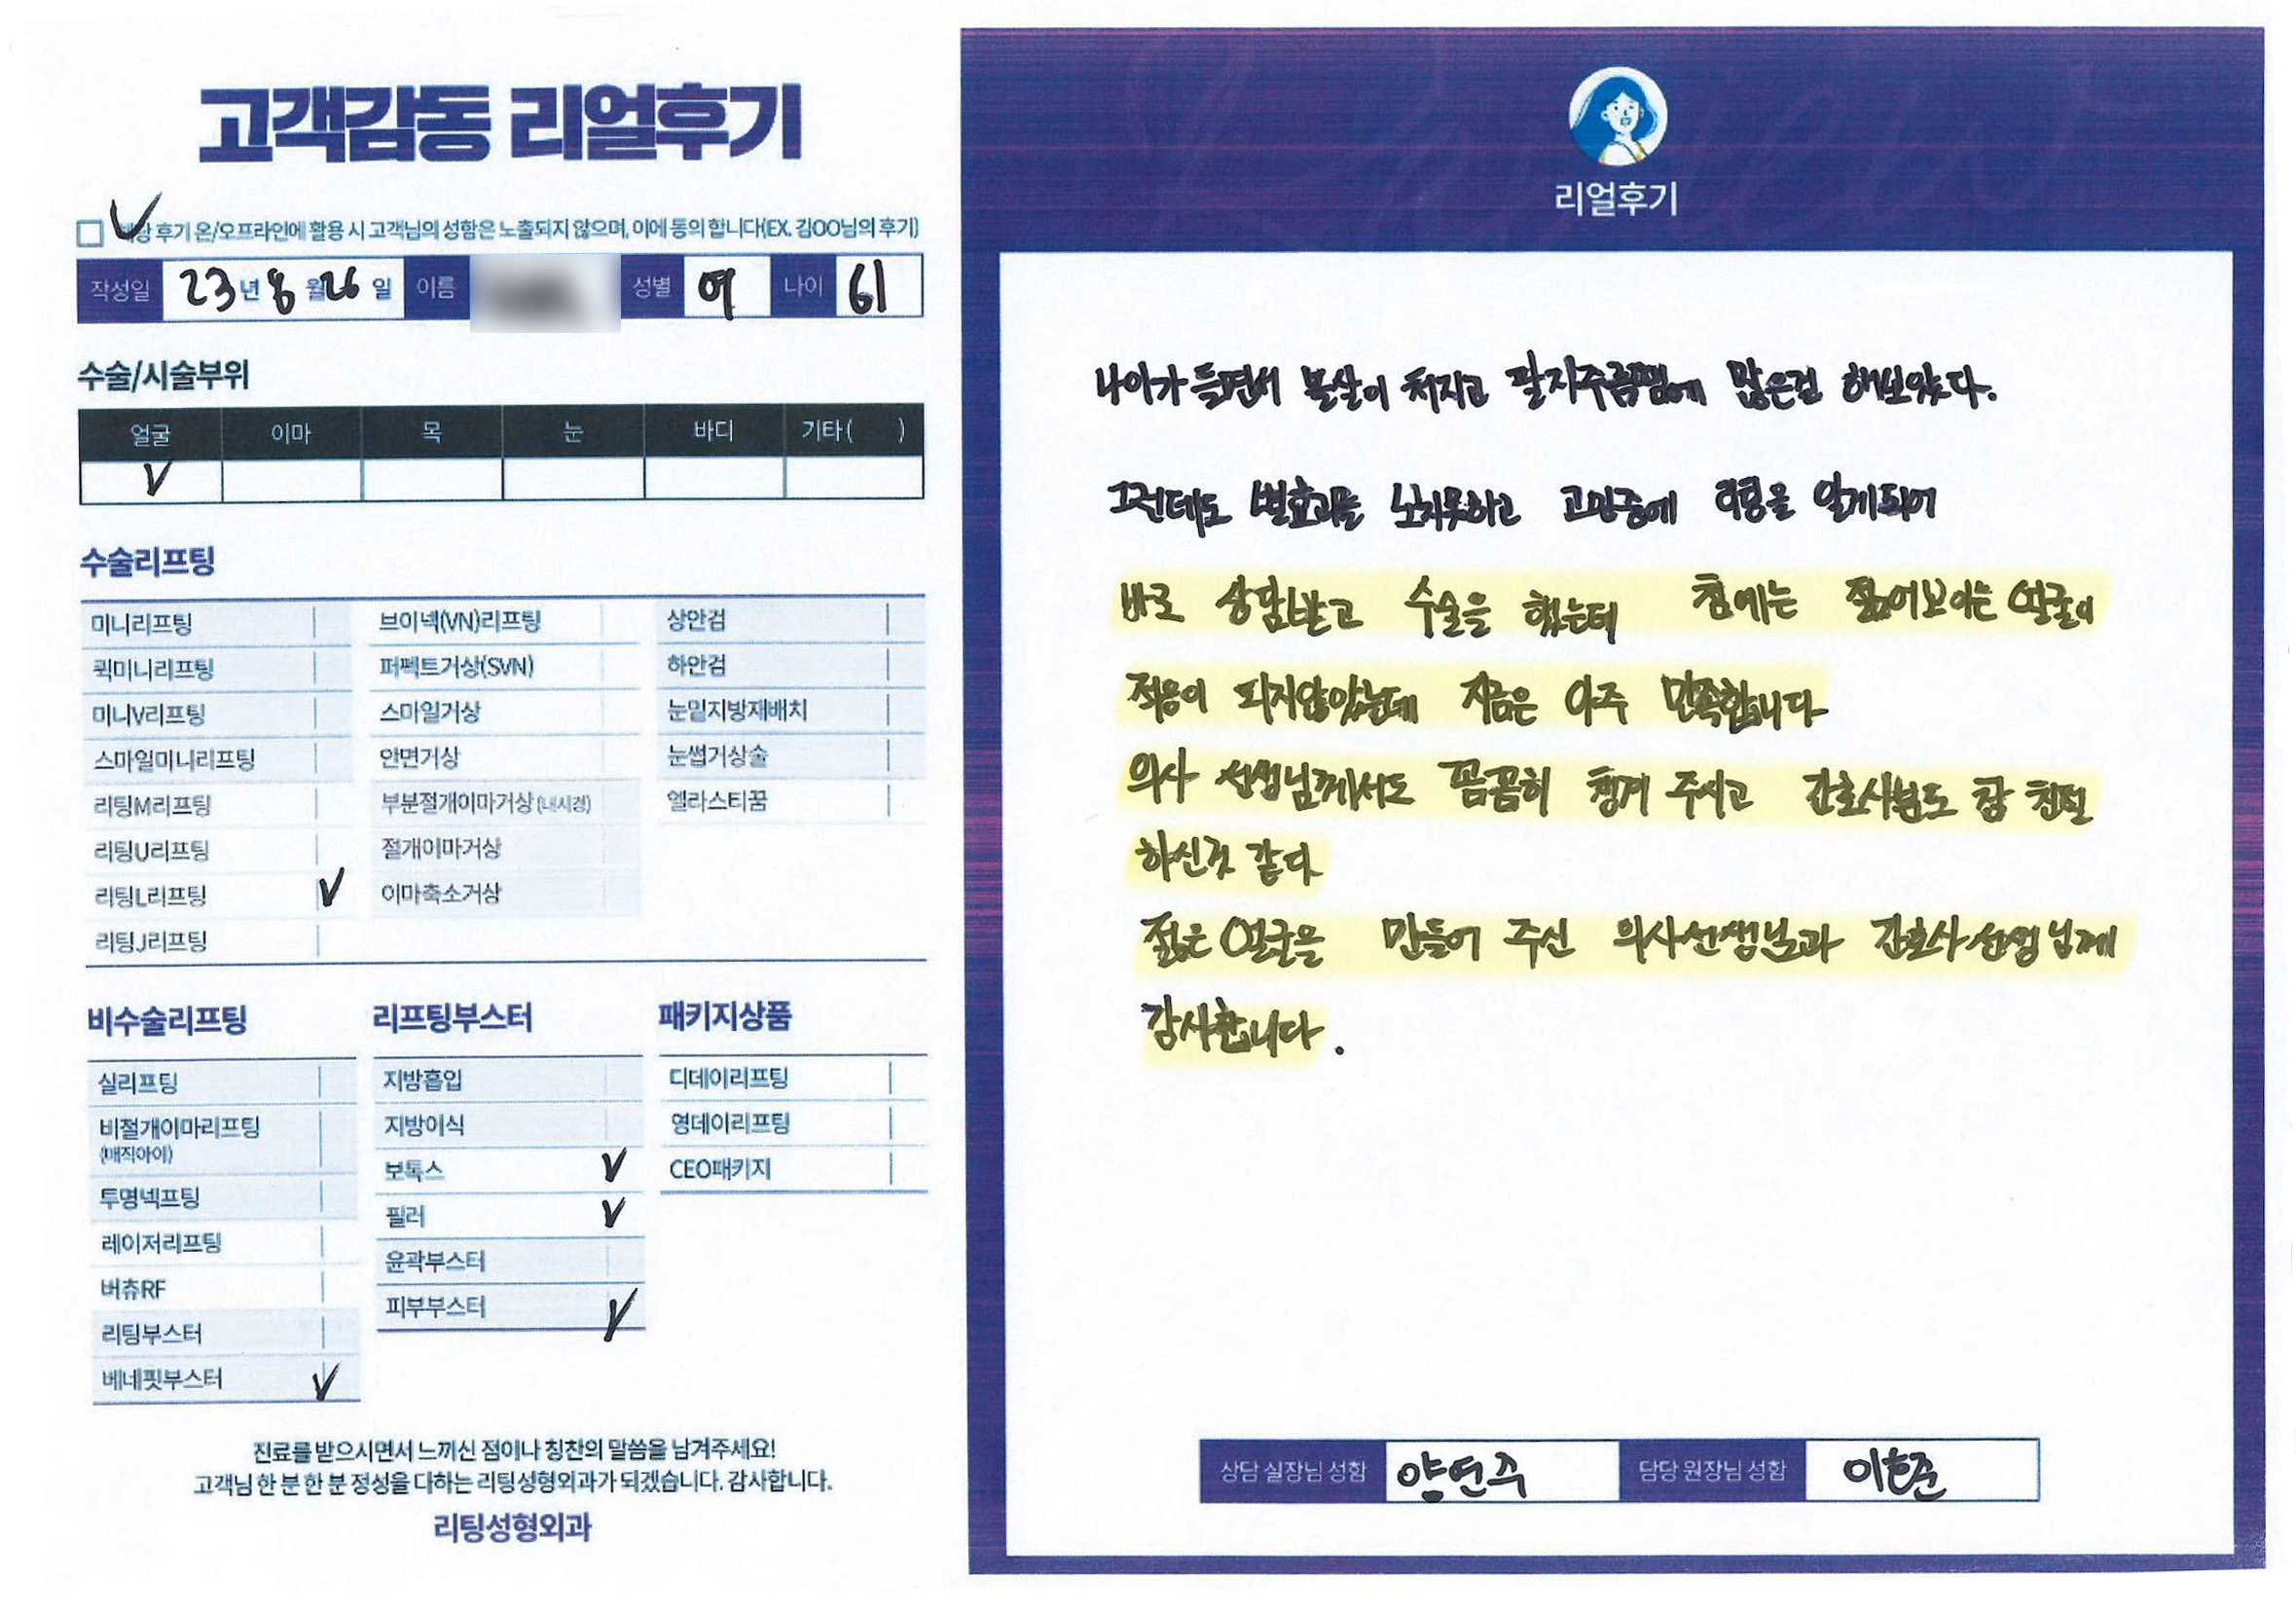 고객감동 리얼후기
해당 후기 온/오프라인에 활용 시 고객님의 성함은 노출되지 않으며, 이에 동의 합니다(EX. 김OO님의 후기)
작성일 23년 8월 26일 이름 성별 여 나이 61
수술/시술부위
얼굴 이마 목 눈 바디 기타( )
V
수술리프팅
미니리프팅 브이넥(VN)리프팅 상안검
퀵미니리프팅 퍼펙트거상(SVN) 하안검
미니V리프팅 스마일거상 눈밑지방재배치
스마일미니리프팅 안면거상 눈썹거상술
리팅M리프팅 부분절개이마거상(내시경) 엘라스티꿈
리팅U리프팅 절개이마거상
리팅L리프팅 V 이마축소거상
리팅J리프팅
비수술리프팅
실리프팅
비절개이마리프팅
(매직아이)
투명넥프팅
레이저리프팅
버츄RF
리팅부스터
베네핏부스터 V
리프팅부스터
지방흡입
지방이식
보톡스 V
필러 V
윤곽부스터
피부부스터 V
패키지상품
디데이리프팅
영데이리프팅
CEO패키지
진료를 받으시면서 느끼신 점이나 칭찬의 말씀을 남겨주세요!
고객님 한 분 한 분 정성을 다하는 리팅성형외과가 되겠습니다. 감사합니다.
리팅성형외과
리얼후기
나이가 들면서 볼살이 처지고 팔자주름땜에 많은걸 해보았다.
그런데도 별효과를 보지못하고 고민중에 리팅을 알게되어
바로 상담받고 수술을 했는데 첨에는 젊어보이는 얼굴이
적응이 되지않았는데 지금은 아주 만족합니다
의사 선생님께서도 꼼꼼히 챙겨 주시고 간호사분도 참 친절
하신것 같다
젊은 얼굴을 만들어 주신 의사선생님과 간호사 선생님께
감사합니다.
상담 실장님 성함 양연주 담당 원장님 성함